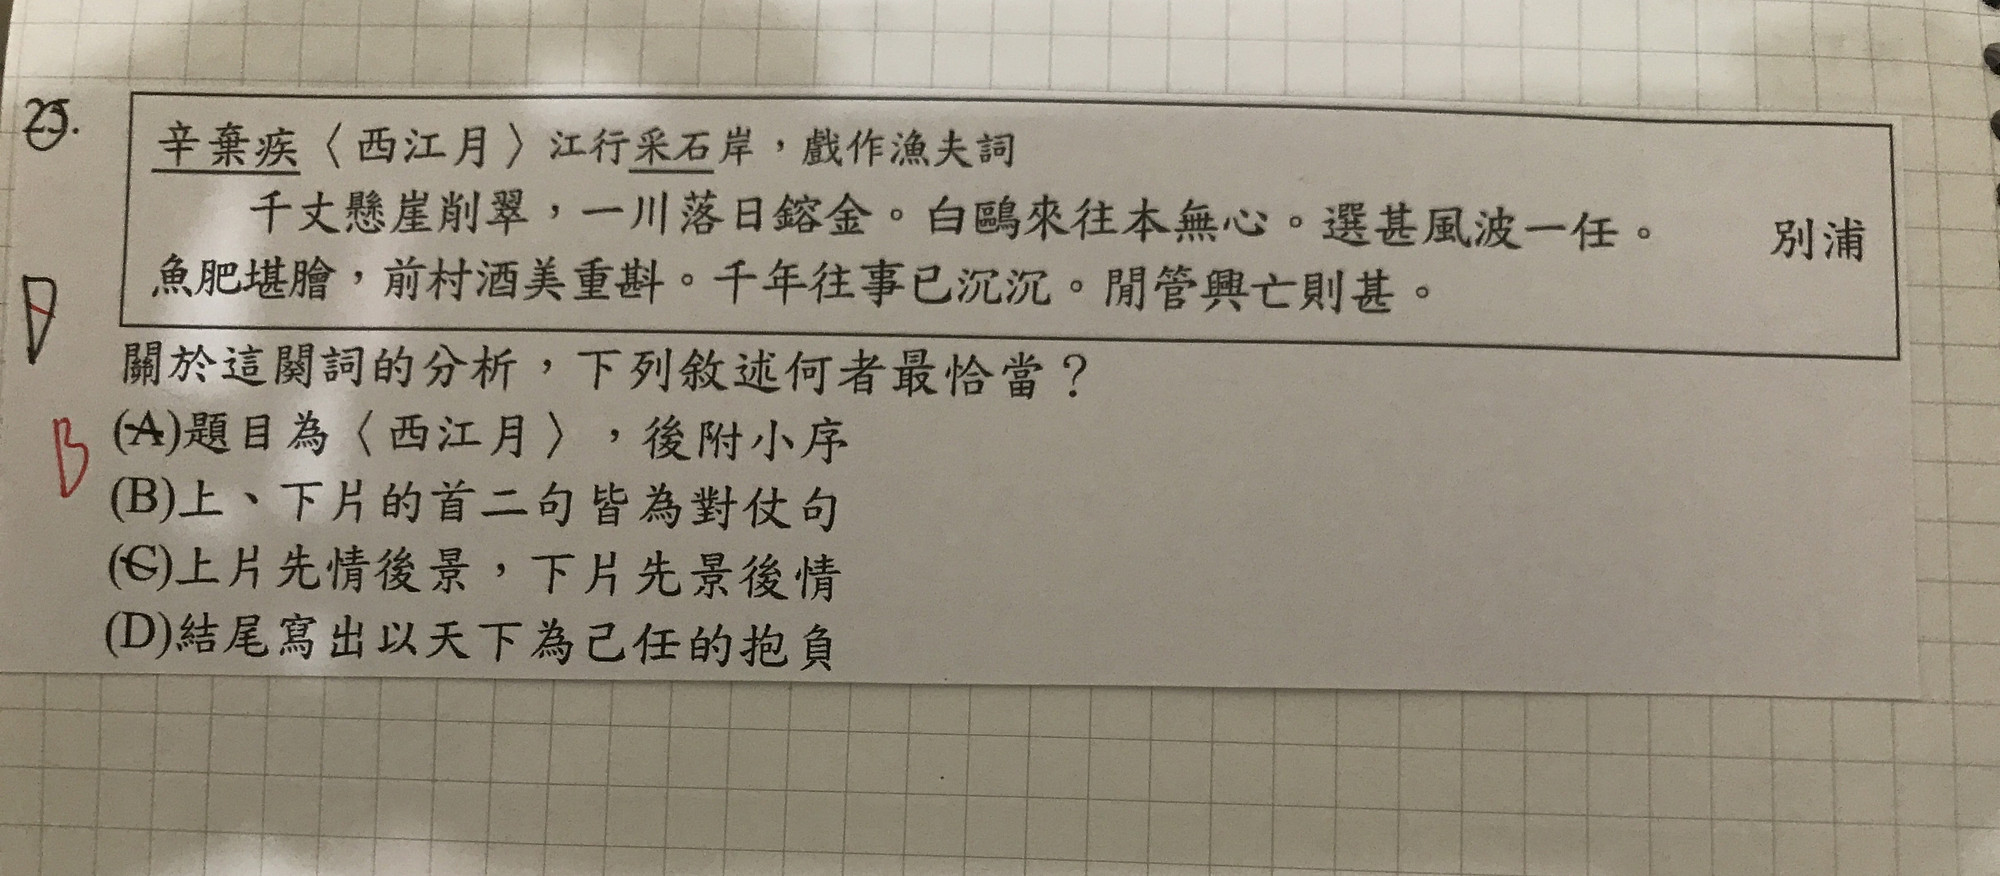 25.
辛棄疾〈西江月〉江行采石岸，戲作漁夫詞
千丈懸崖削翠，一川落日鎔金。白鷗來往本無心。選甚風波一任。　　別浦
魚肥堪膾，前村酒美重斟。千年往事已沉沉。閒管興亡則甚。
D
關於這闋詞的分析，下列敘述何者最恰當？
B
(A)題目為〈西江月〉，後附小序
(B)上、下片的首二句皆為對仗句
(C)上片先情後景，下片先景後情
(D)結尾寫出以天下為己任的抱負